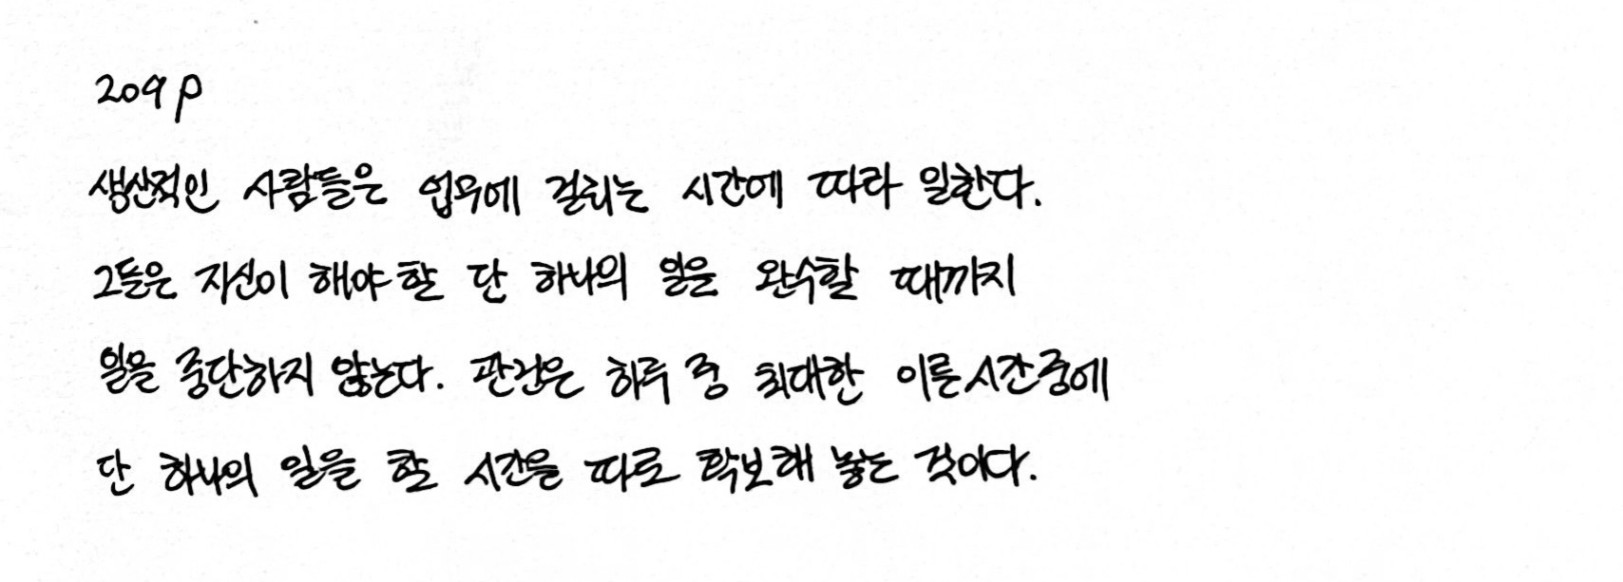 209p
생산적인 사람들은 업무에 걸리는 시간에 따라 일한다.
그들은 자신이 해야 할 단 하나의 일을 완수할 때까지
일을 중단하지 않는다. 관건은 하루 중 최대한 이른 시간 중에
단 하나의 일을 할 시간을 따로 확보해 놓는 것이다.